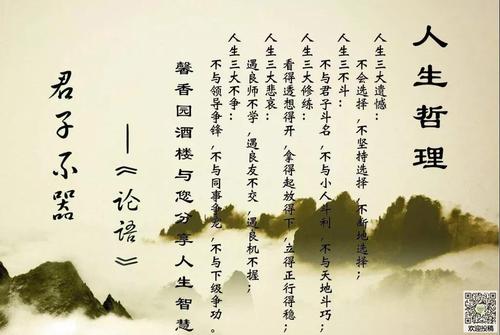 人生哲理
人生三大遗憾：
不会选择，不坚持选择，不断地选择；
人生三不斗：
不与君子斗名，不与小人斗利，不与天地斗巧；
人生三大修练：
看得透想得开，拿得起放得下，立得正行得稳；
人生三大悲哀：
遇良师不学，遇良友不交，遇良机不握；
人生三大不争：
不与领导争锋，不与同事争宠，不与下级争功。
馨香园酒楼与您分享人生智慧
——《论语》
君子不器
欢迎投稿